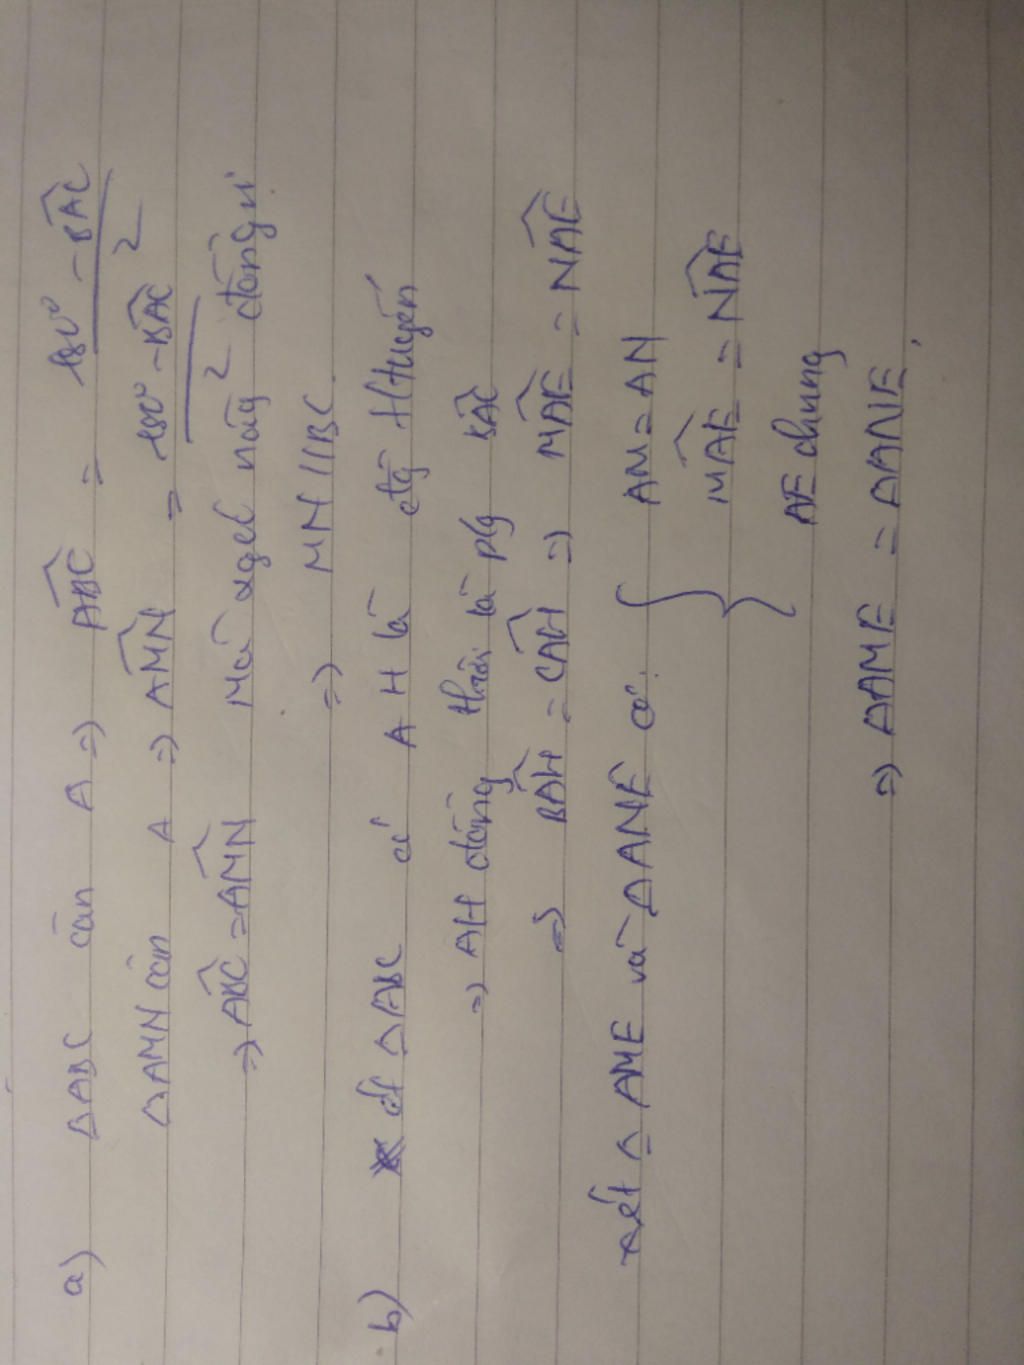 a) ΔABC cân A => \widehat{ABC} = \frac{180° - \widehat{BAC}}{2}
ΔAMN cân A => \widehat{AMN} = \frac{180° - \widehat{BAC}}{2}
=> \widehat{ABC} = \widehat{AMN} Mà 2 góc này đồng vị
=> MN // BC.
b) ΔABC có AH là đg
=> AH đồng thời là pg \widehat{BAC}
=> \widehat{BAH} = \widehat{CAH} => \widehat{MAE} = \widehat{NAE}
xét Δ AME và ΔANE có: { AM = AN
\widehat{MAE} = \widehat{NAE}
AE chung
=> ΔAME = ΔANE.